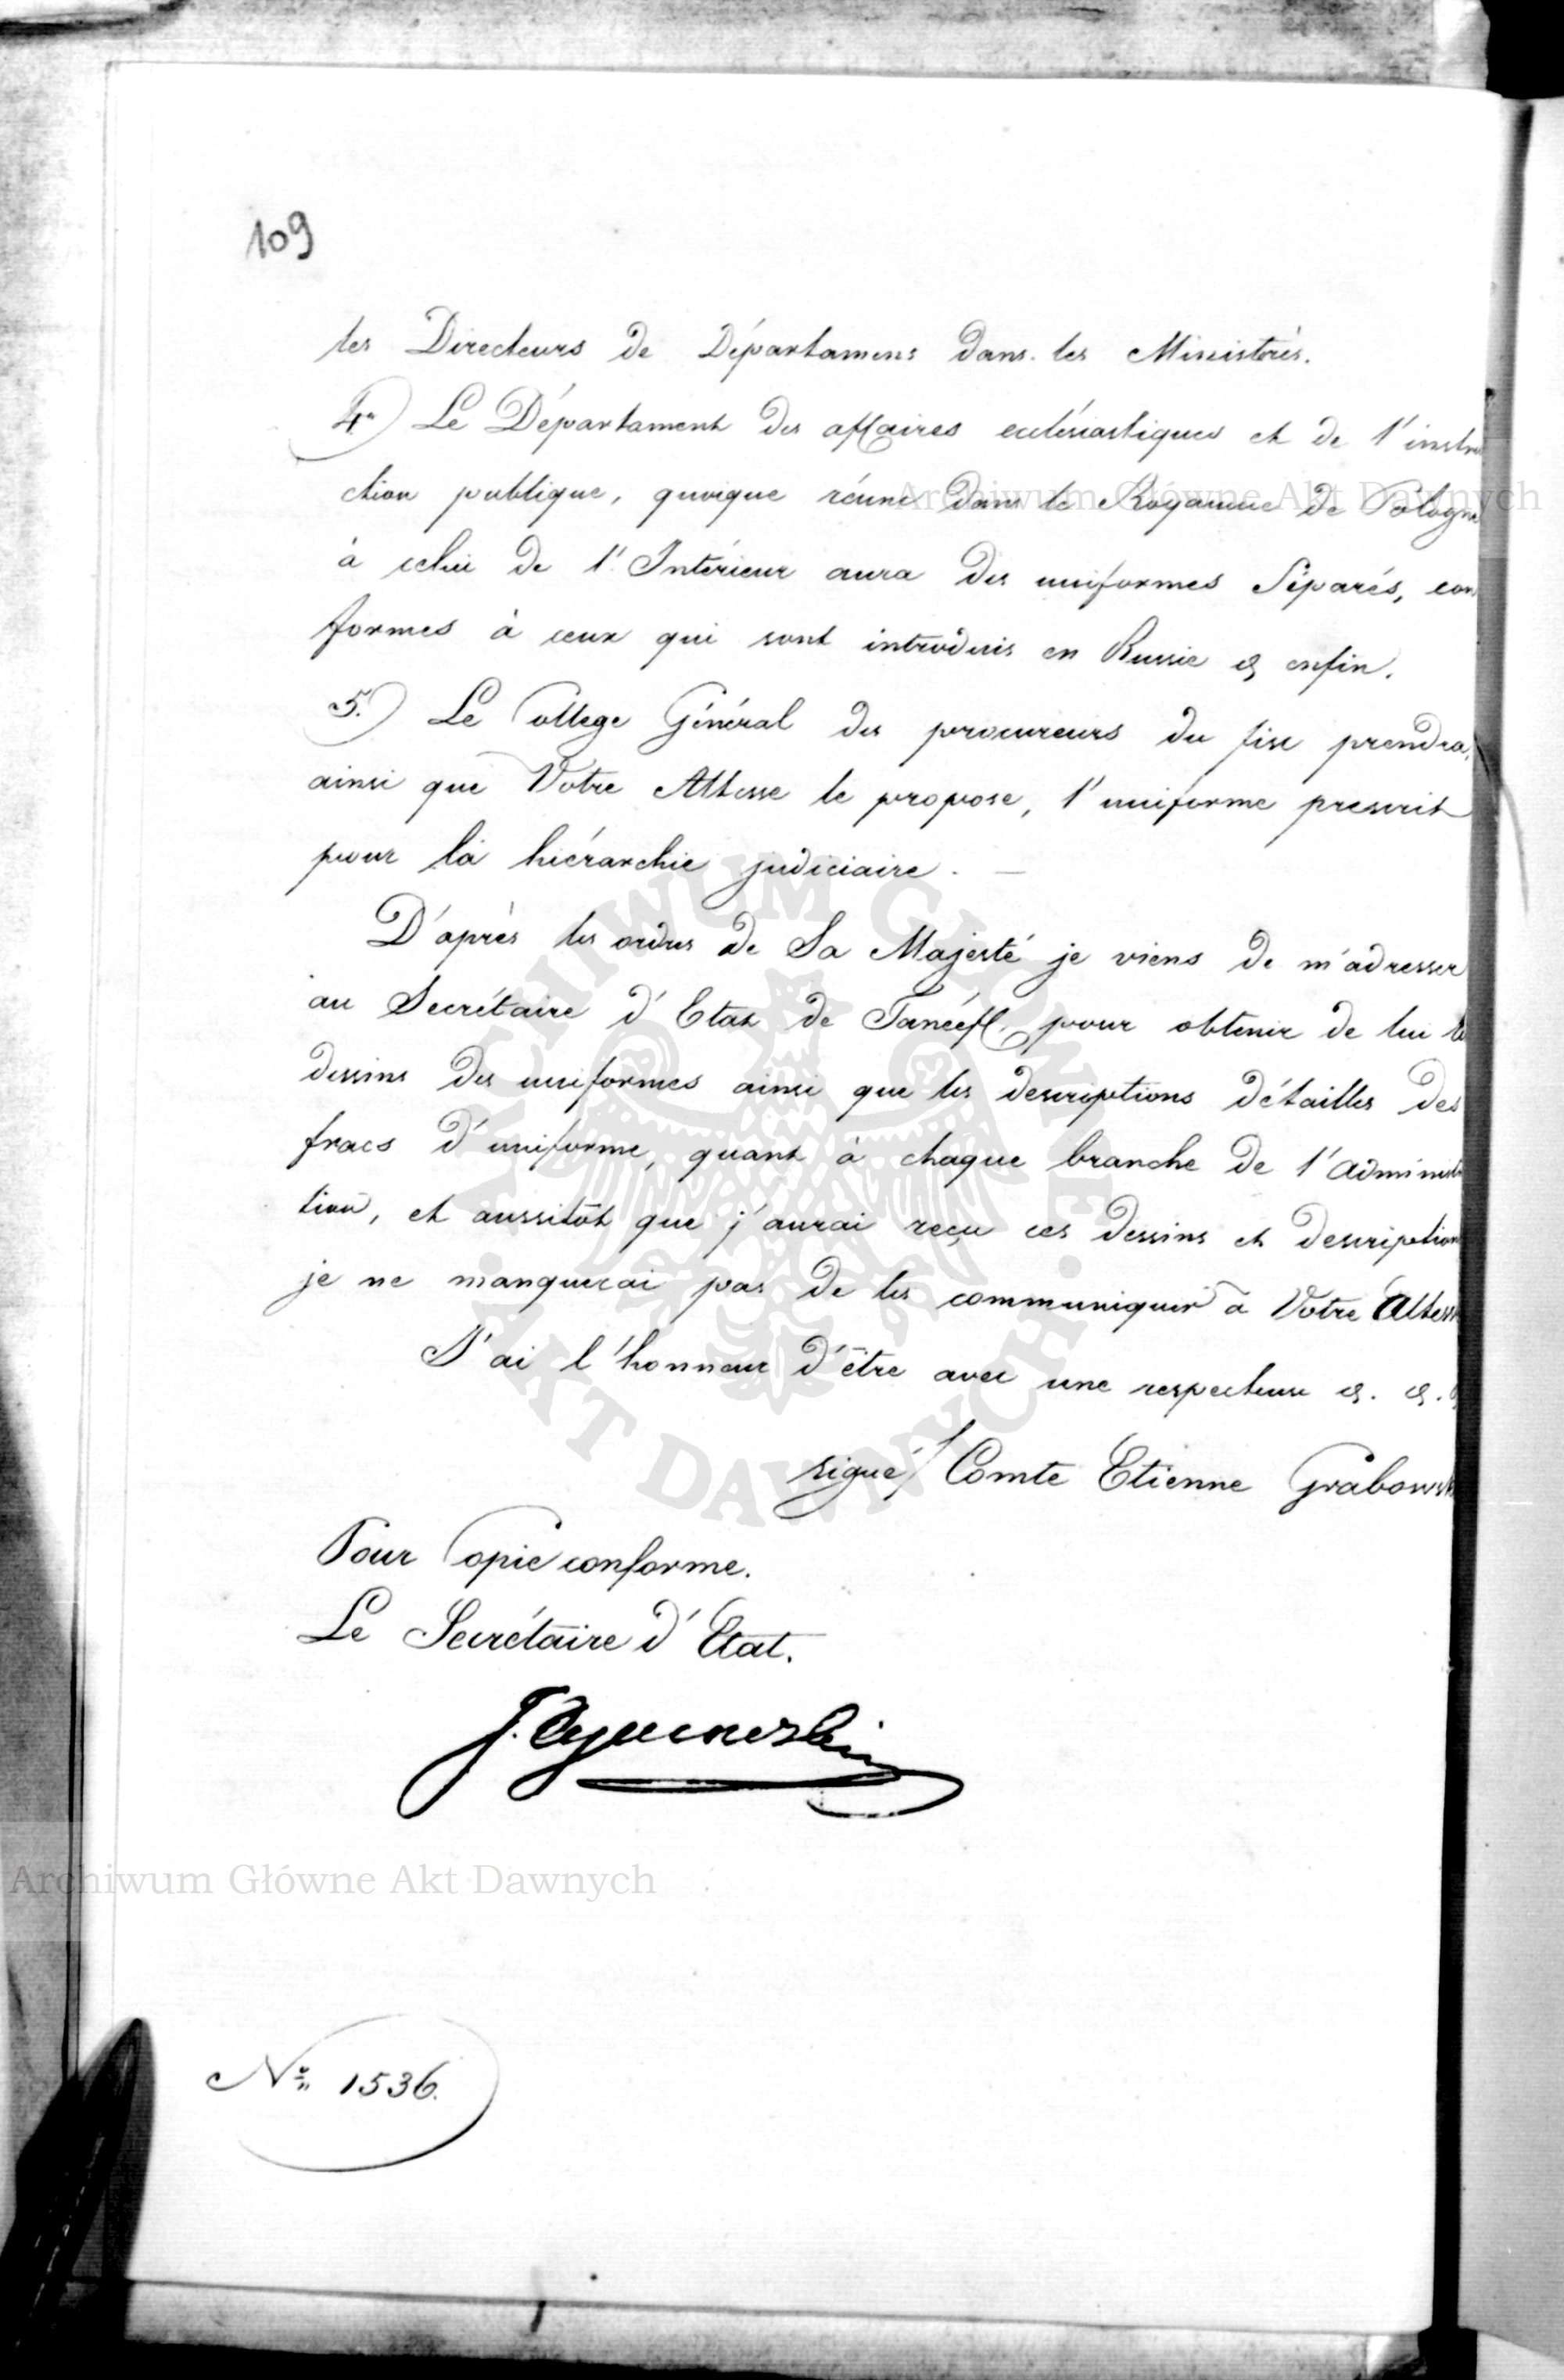 109
les Directeurs de Départamens dans les Ministères.
4º) Le Départament des affaires ecclésiastiques et de l'instru
ction publique, quoique réuni dans le Royaume de Pologne
à celui de l'Intérieur aura des uniformes séparés, con
formes à ceux qui sont introduis en Russie & enfin.
5.) Le College Général des procureurs du fisc prendra,
ainsi que Votre Altesse le propose, l'uniforme prescrit
pour la hiérarchie judiciaire. —
D'après les ordres de Sa Majesté je viens de m'adresser
au Secrétaire d'Etat de Tanéeff, pour obtenir de lui les
dessins des uniformes ainsi que les descriptions détailles des
fracs d'uniforme, quant à chaque branche de l'administra
tion, et aussitôt que j'aurai reçu ces dessins et description
je ne manquerai pas de les communiquer à Votre Altesse
J'ai l'honneur d'être avec une respectueuse &. &. &
signé/ Comte Etienne Grabowski
Pour Copie conforme.
Le Secrétaire d'Etat.
Nº 1536.
Archiwum Główne Akt Dawnych
Archiwum Główne Akt Dawnych
ARCHIWUM GŁÓWNE
AKT DAWNYCH